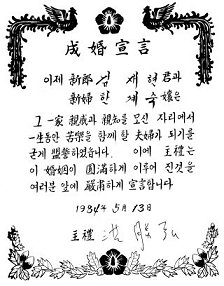 成婚宣言
이제 新郎 님 재현君과
新婦 한 계숙孃은
그 一家 親戚과 親知를 모신 자리에서
一生동안 苦樂을 함께 할 夫婦가 되기를
굳게 盟誓하였습니다. 이에 主禮는
이 婚姻이 圓滿하게 이루어 진것을
여러분 앞에 嚴肅하게 宣言합니다
1984年 5月 13日
主禮